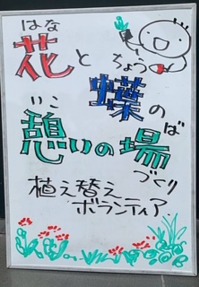 はな
花と ちょう
蝶の
いこ ば
憩いの場
づくり
植え替え
ボランティア